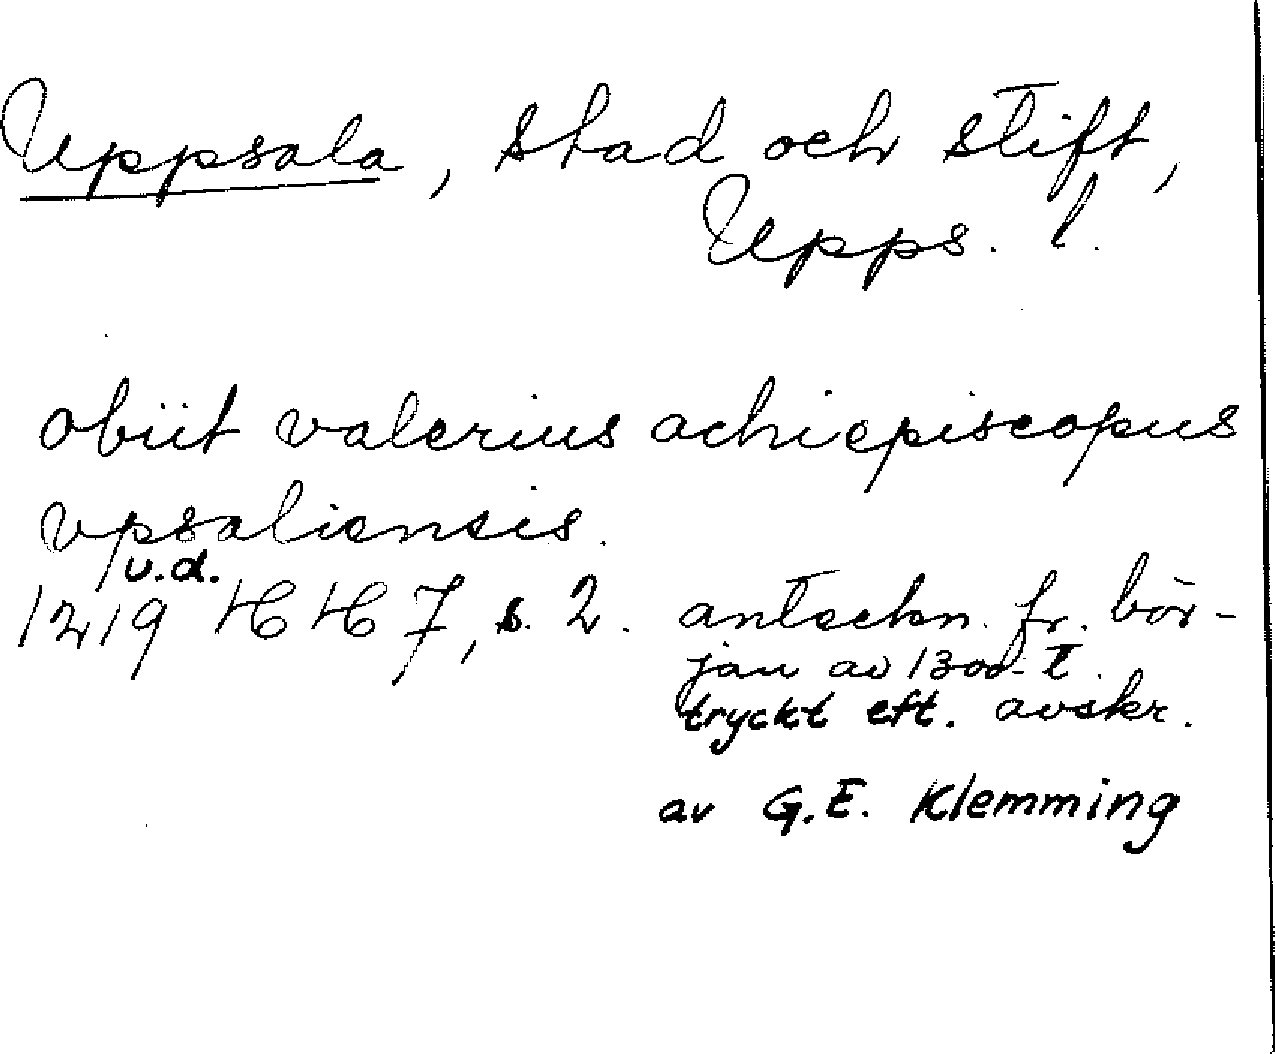 Uppsala, stad och stift,
Upps. l.
obiit valerius achiepiscopus
vpsaliensis.
u.d.
1219 HH 7, s. 2. anteckn. fr. bör-
jan av 1300-t.
tryckt eft. avskr.
av G.E. Klemming